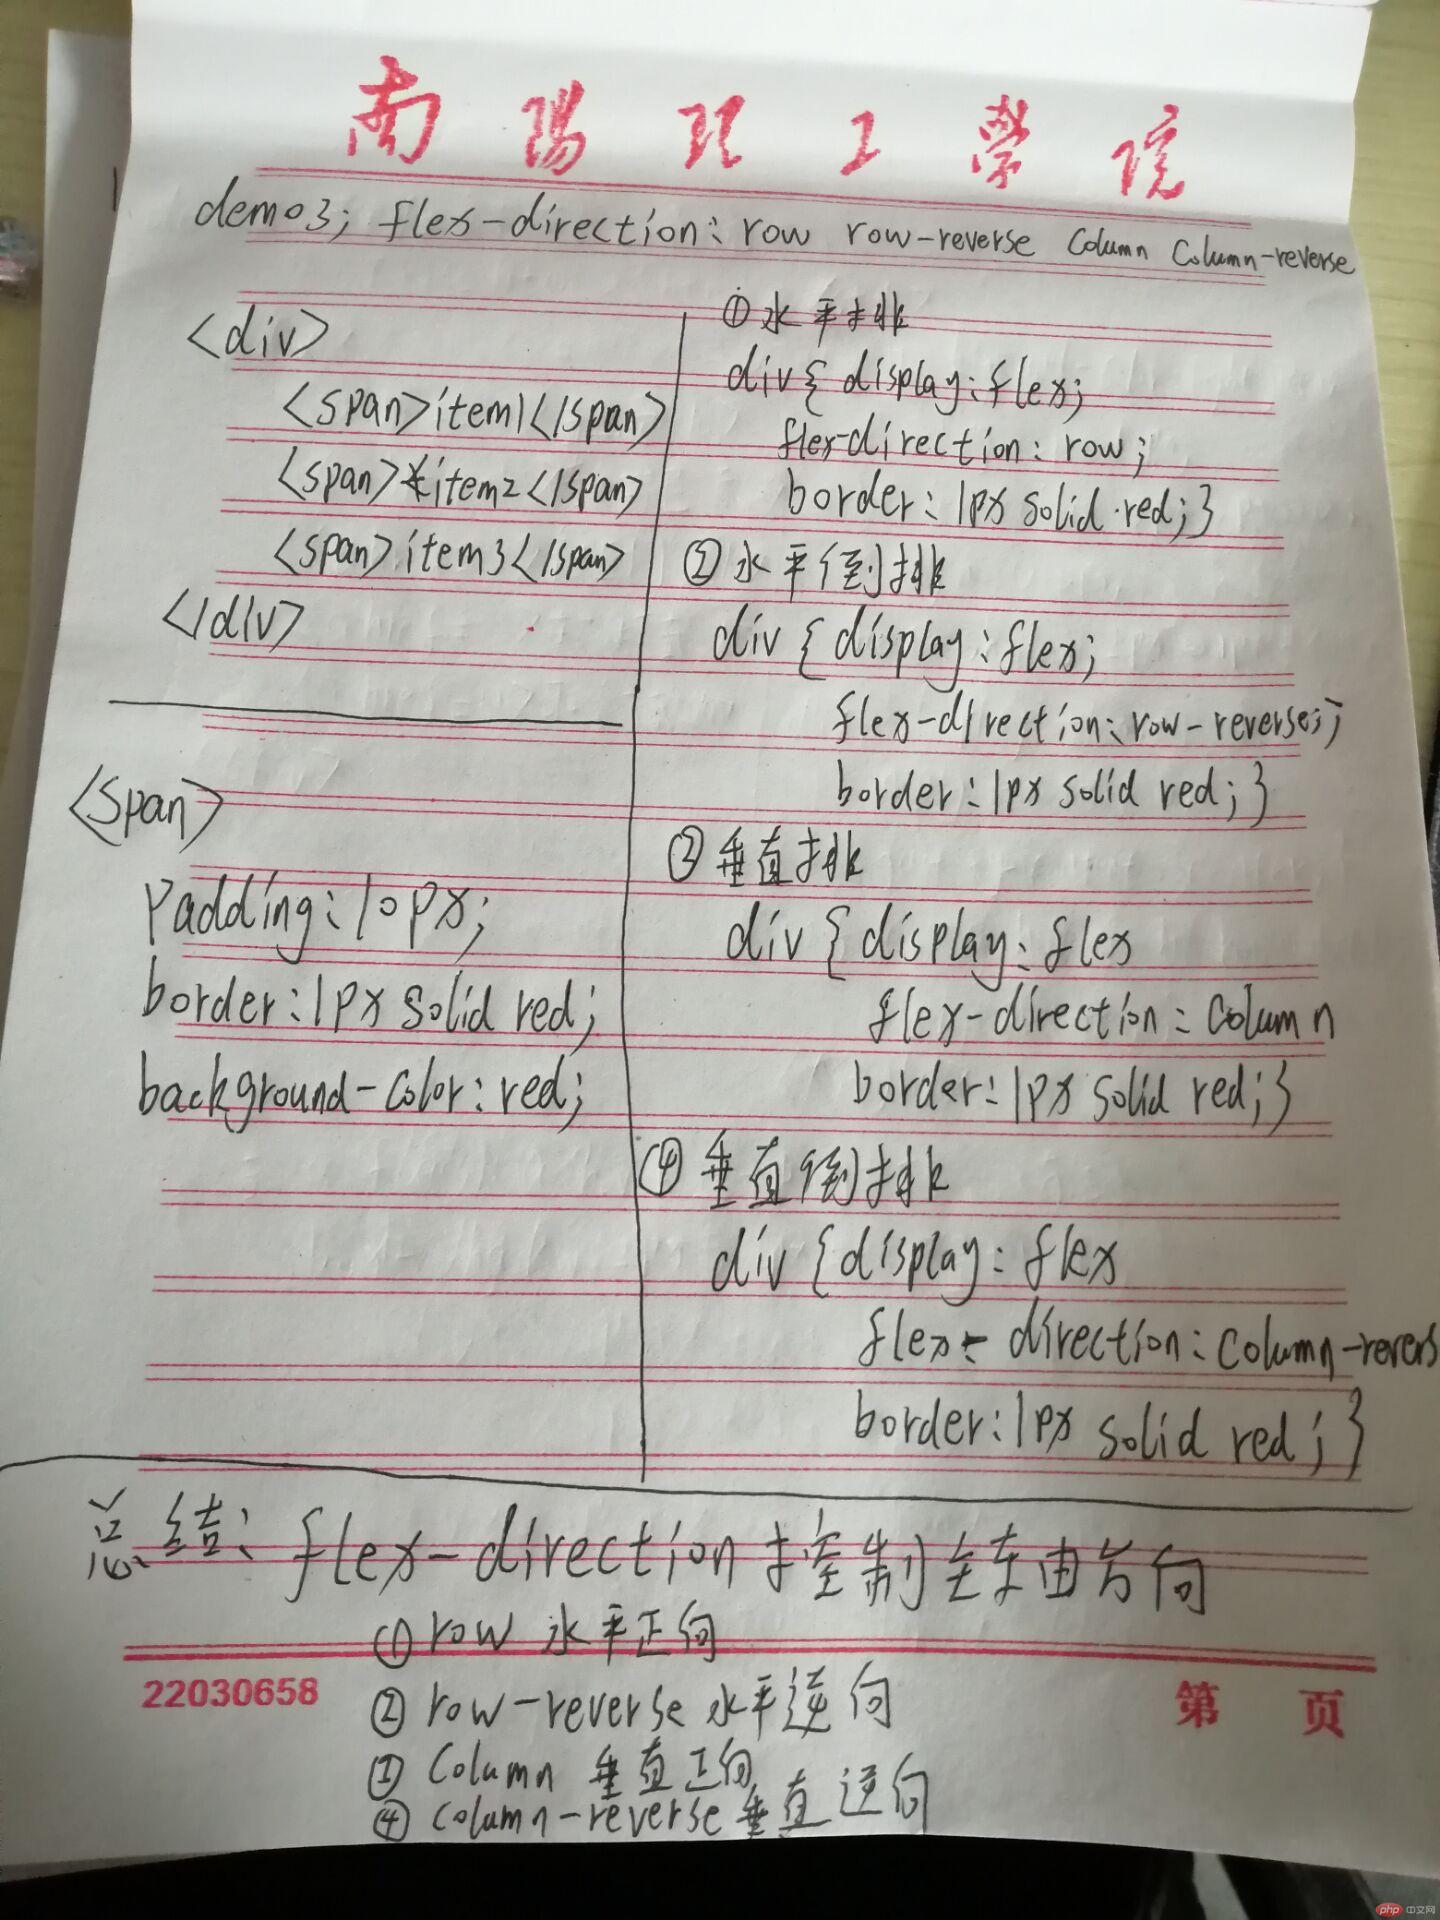 南陽理工學院
demo3; flex-direction: row row-reverse column column-reverse
<div>
<span>item1</span>
<span>item2</span>
<span>item3</span>
</div>
<span>
Padding:10px;
border:1px solid red;
background-color:red;
①水平排
div{display:flex;
flex-direction:row;
border:1px solid red;}
②水平倒排
div{display:flex;
flex-direction:row-reverse;;
border:1px solid red;}
③垂直排
div{display:flex
flex-direction:column
border:1px solid red;}
④垂直倒排
div{display:flex
flex-direction:column-revers
border:1px solid red;}
总结:flex-direction控制主轴方向
①row 水平正向
②row-reverse 水平逆向
③column 垂直正向
④column-reverse 垂直逆向
22030658
第 页
php 中文网